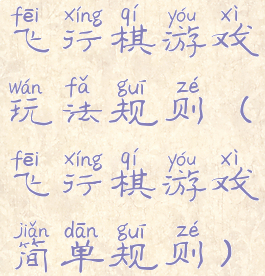 fēi xíng qí yóu xì
飞行棋游戏
wán fǎ guī zé
玩法规则（
fēi xíng qí yóu xì
飞行棋游戏
jiǎn dān guī zé
简单规则）